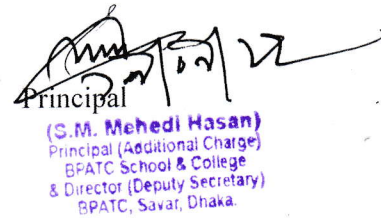 Principal
(S.M. Mehedi Hasan)
Principal (Additional Charge)
BPATC School & College
& Director (Deputy Secretary)
BPATC, Savar, Dhaka.